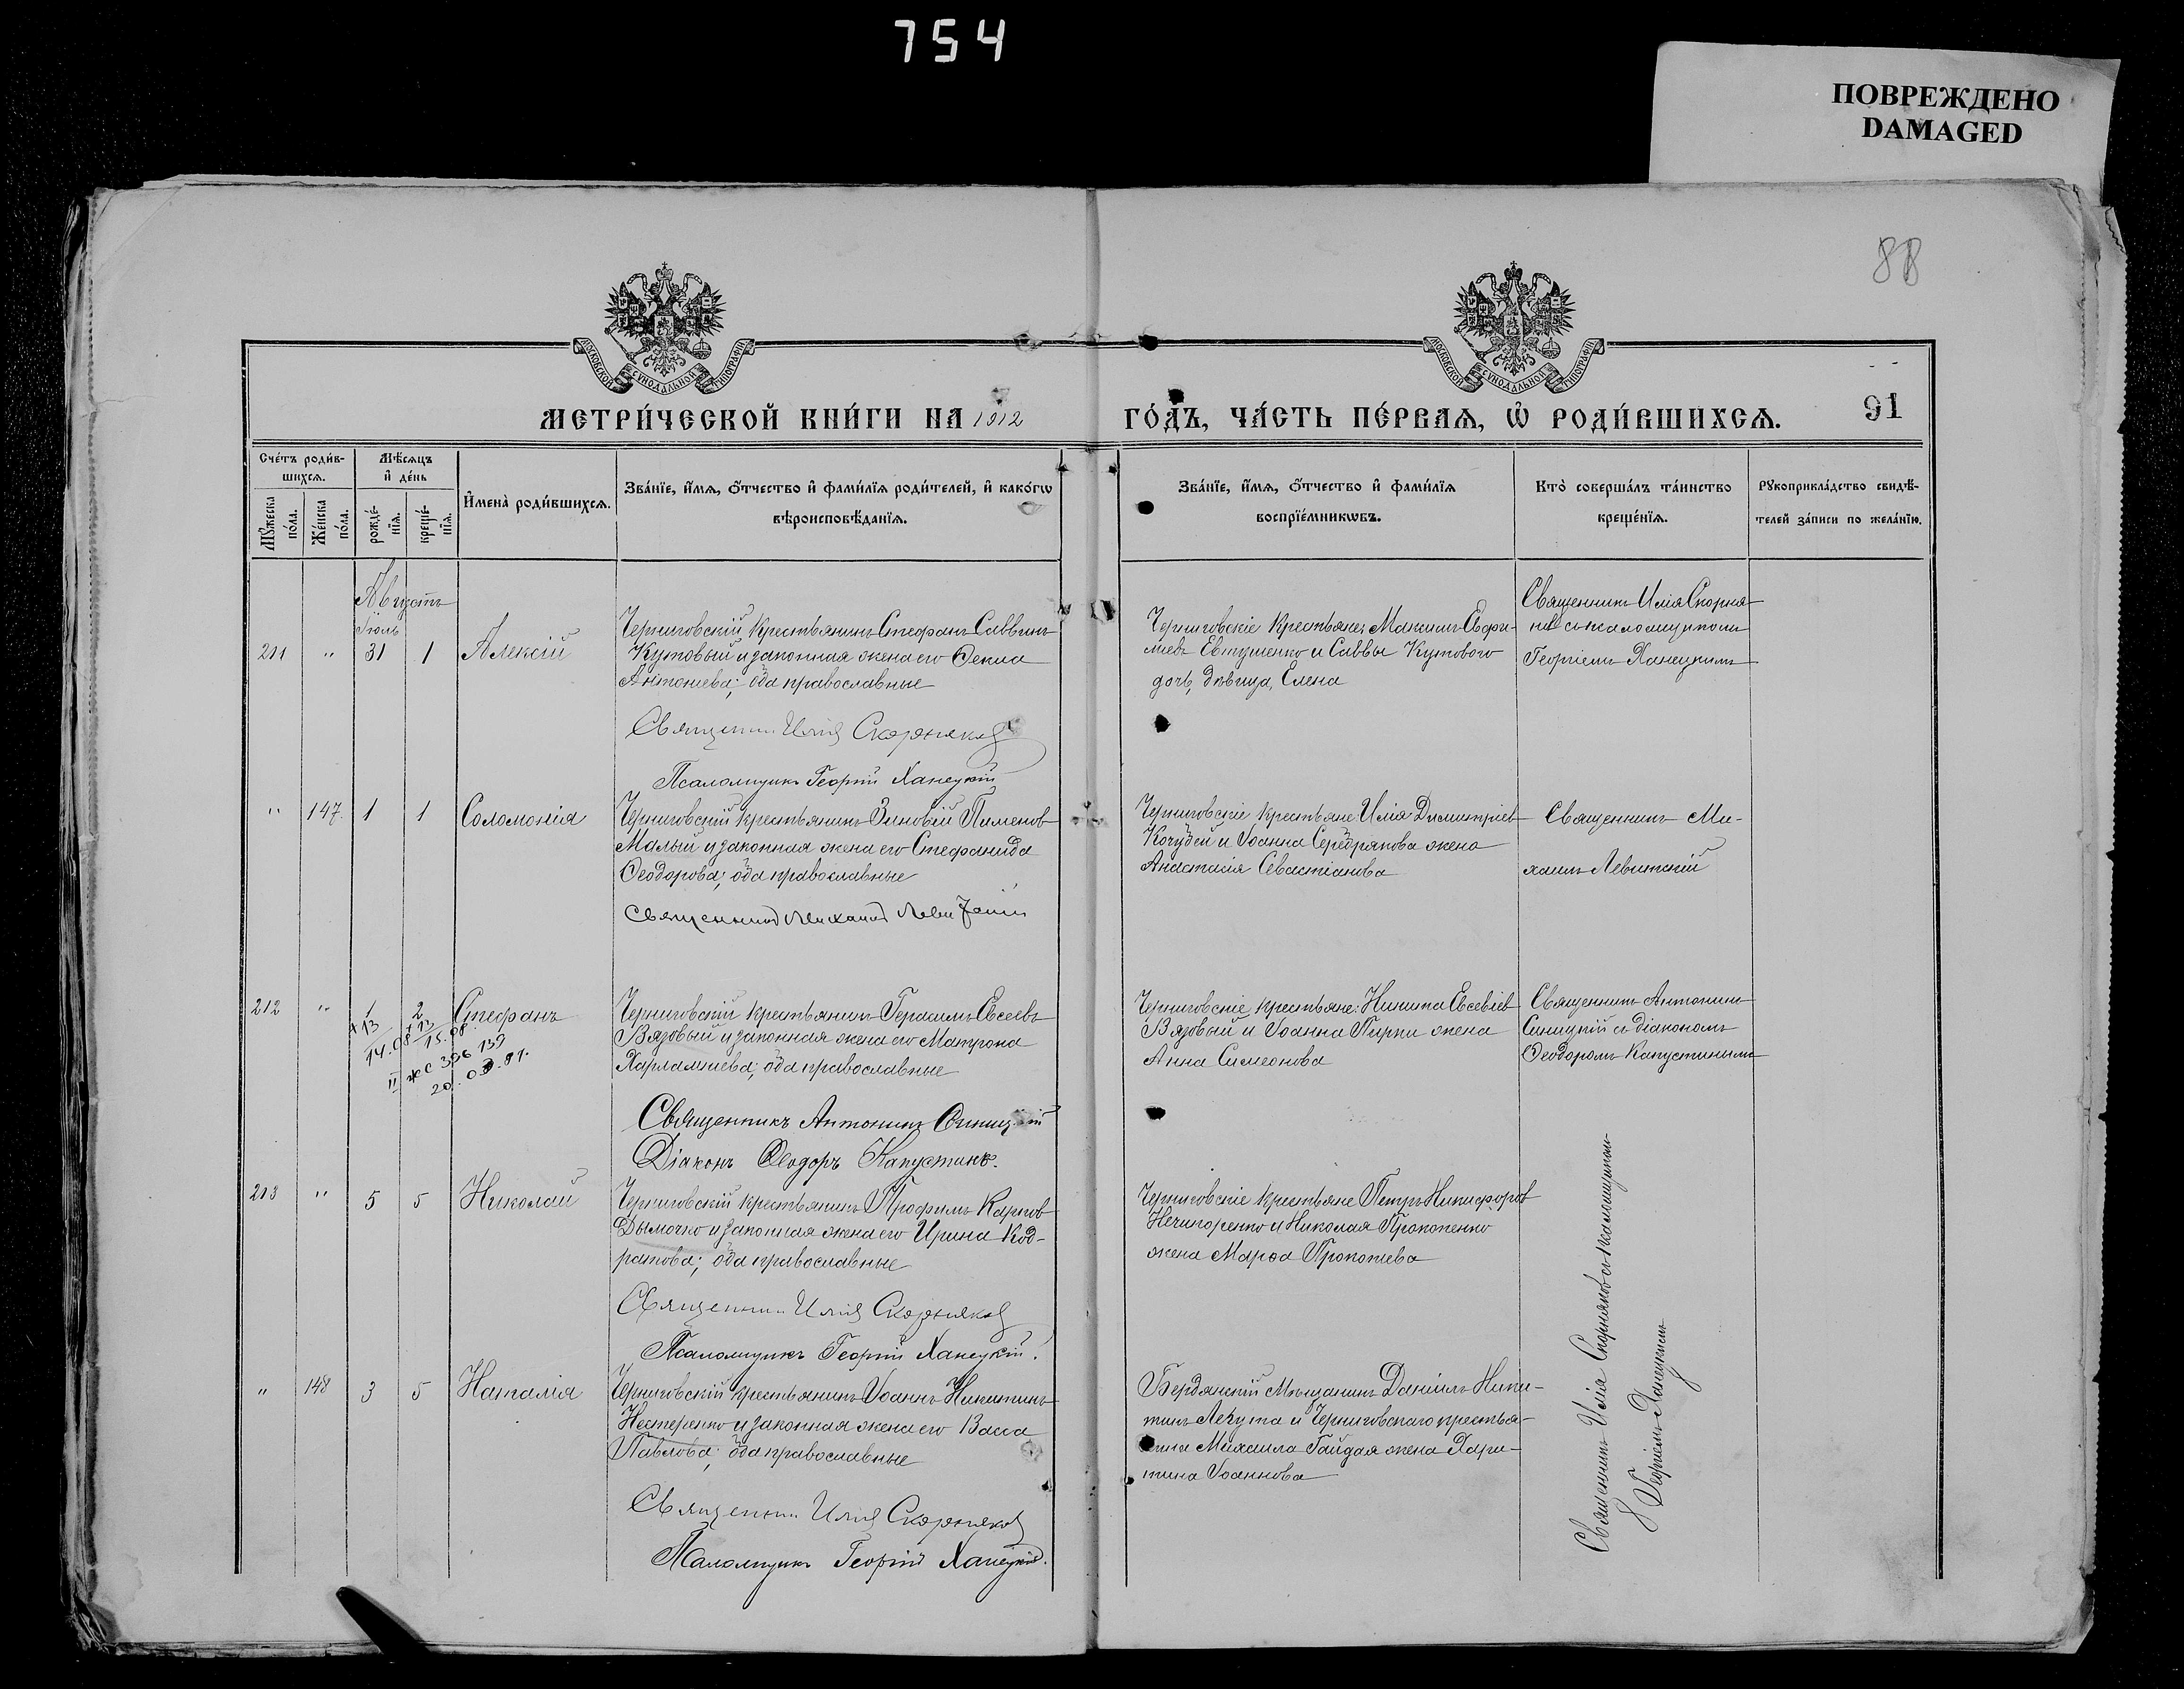 754
ПОВРЕЖДЕНО
DAMAGED
88
МОСКОВСКОЙ СУНОДАЛЬНОЙ ТИПОГРАФІИ
МОСКОВСКОЙ СУНОДАЛЬНОЙ ТИПОГРАФІИ
МЕТРИ́ЧЕСКОЙ КНИ́ГИ НА 1912
ГО́ДЪ, ЧА́СТЬ ПЕ́РВАѦ, Ѡ҆ РОДИ́ВШИХСѦ.
91
Сче́тъ роди́в-
шихсѧ.
Мꙋ́жеска по́ла.
Же́нска по́ла.
Мѣ́сѧцъ
и҆ де́нь
рожде́-нїѧ.
креще́-нїѧ.
И҆мена̀ роди́вшихсѧ.
Зва́нїе, и҆́мѧ, ѻ҆́тчество и҆ фами́лїѧ роди́телей, и҆ како́гѡ
вѣроисповѣ́данїѧ.
Зва́нїе, и҆́мѧ, ѻ҆́тчество и҆ фами́лїѧ
воспрїе́мникѡвъ.
Кто̀ соверша́лъ та́инство
креще́нїѧ.
Рꙋкоприкла́дство свидѣ́-
телей за́писи по жела́нїю.
Августъ
Іюль
211 " 31 1 Алексій
Черниговскій крестьянинъ Стефанъ Саввинъ
Кутовый и законная жена его Ѳекла
Антоніева; оба православные
Священникъ Илія Скорняковъ
Псаломщикъ Георгій Ханецкій
Черниговскіе крестьяне: Максимъ Евфи-
міевъ Евтушенко и Саввы Кутового
дочь, дѣвица, Елена
Священникъ Илія Скорня-
ковъ съ псаломщикомъ
Георгіемъ Ханецкимъ
" 147. 1 1 Соломонія
Черниговскій крестьянинъ Зиновій Пименовъ
Малый и законная жена его Стефанида
Ѳеодорова; оба православные
Священникъ Михаилъ Левитскій
Черниговскіе крестьяне: Илія Димитріевъ
Кочубей и Іоанна Серебрякова жена
Анастасія Севастіанова
Священникъ Ми-
хаилъ Левитскій
212 " 1 2 Стефанъ
+13 +13
14.08 15.08.
II жс 396 139
20.03.81.
Черниговскій крестьянинъ Герасимъ Евсеевъ
Вязовый и законная жена его Матрона
Харлампіева; оба православные
Священникъ Антонинъ Синицкій
Діаконъ Ѳеодоръ Капустинъ.
Черниговскіе крестьяне: Никита Евсевіевъ
Вязовый и Іоанна Пирки жена
Анна Симеонова
Священникъ Антонинъ
Синицкій съ діакономъ
Ѳеодоромъ Капустинымъ
213 " 5 5 Николай
Черниговскій крестьянинъ Трофимъ Карпов
Дымочко и законная жена его Ирина Код-
ратова; оба православные
Священникъ Илія Скорняковъ
Псаломщикъ Георгій Ханецкій.
Черниговскіе крестьяне Петръ Никифоров
Нечипоренко и Николая Прокопенко
жена Марѳа Прокопіева
" 148 3 5 Наталія
Черниговскій крестьянинъ Іоаннъ Никитинъ
Нестеренко и законная жена его Васса
Павлова; оба православные
Священникъ Илія Скорняковъ
Псаломщикъ Георгій Ханецкій.
Бердянскій мѣщанинъ Даніилъ Ники-
тинъ Лекута и Черниговскаго крестья-
нина Михаила Гайдая жена Хари-
тина Іоаннова
Священникъ Илія Скорняковъ съ псаломщикомъ
Георгіемъ Ханецкимъ